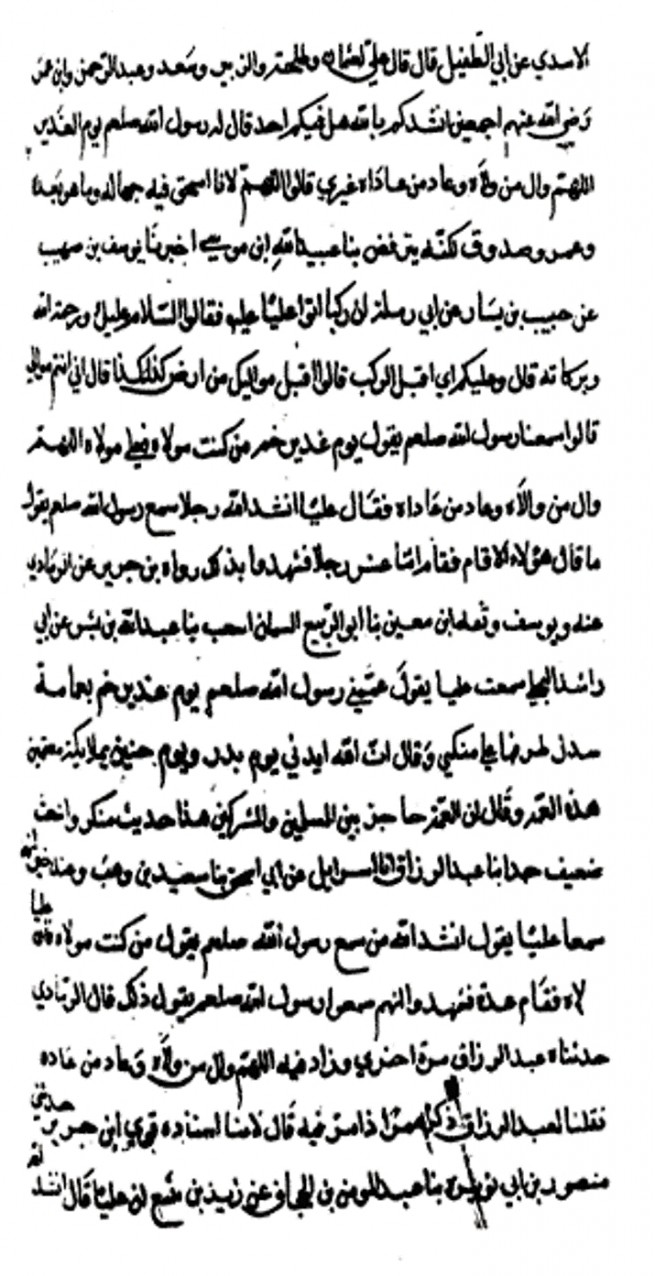 الاسدي عن ابي الطفيل قال قال علي لعثمان وطلحة والزبير وسعد وعبد الرحمن وابن عمر
رضي الله عنهم اجمعين انشدكم بالله هل فيكم احد قال له رسول الله صلعم يوم الغدير
اللهم وال من والاه وعاد من عاداه غيري قالوا اللهم لا فيه جهالة
وعمر وصدوق لكنه يترفض بنا عبيد الله ابن موسي اخبرنا يوسف بن صهيب
عن حبيب بن يسار عن ابي رملة ان ركبا اتوا عليا عليه فقالوا السلام عليك ورحمة الله
وبركاته قال وعليكم اي اقبل الركب قالوا اقبل مواليك من ارض كذا كذا قال اني انتم موالي
قالوا سمعنا رسول الله صلعم يقول يوم غدير خم من كنت مولاه فعلي مولاه اللهم
وال من والاه وعاد من عاداه فقال عليا انشد الله رجلا سمع رسول الله صلعم يقول
ما قال هؤلاء الا قام فقام اثنا عشر رجلا فشهدوا بذلك رواه بن جرير عن الرمادي
عنه ويوسف وثقه ابن معين بنا ابو الربيع السمان بنا عبد الله بن بشر عن ابي
راشد سمعت عليا يقول عممني رسول الله صلعم يوم غدير خم بعمامة
سدل طرفها علي منكبي وقال ان الله ايدني يوم بدر ويوم حنين بملايكة معتمين
هذه العمة وقال ان العمة حاجز بين المسلمين والمشركين هذا حديث منكر
ضعيف عبد الرزاق انا اسرايل عن ابي اسحق بنا سعيد بن وهب وعبد خير انهما
سمعا عليا يقول انشد الله من سمع رسول الله صلعم يقول من كنت مولاه عليا
لاه فقام عدة فشهدوا انهم سمعوا رسول الله صلعم يقول ذلك قال الرمادي
حدثناه عبد الرزاق مرة اخري وزاد فيه اللهم وال من والاه وعاد من عاداه
فقلنا لعبد الرزاق فيه قال اسناده قوي ابن جرير حدثني
منصور بن ابي نويرة بنا عبد المومن بن عن زيد بن يثيع ان عليا قال انشد الله